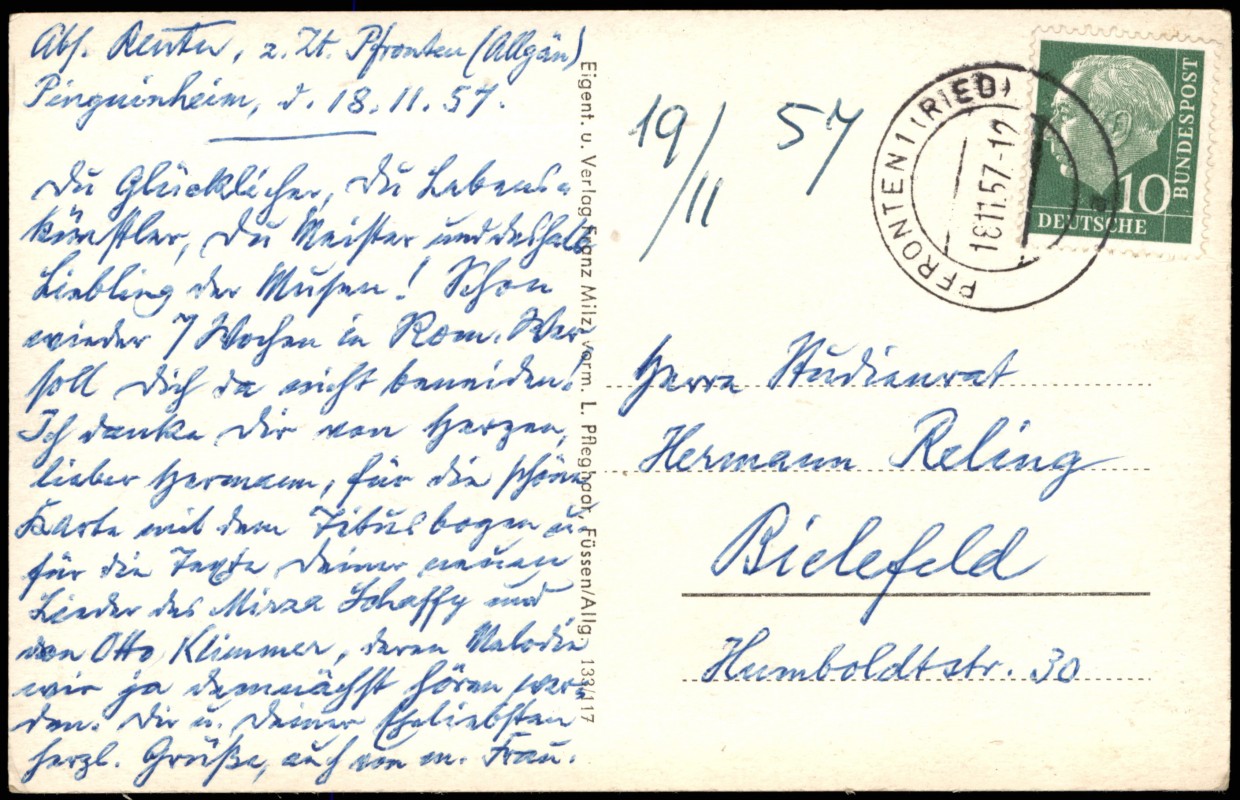 Abs. Reuter, z. Zt. Pfronten (Allgäu)
Pinguinheim, d. 18.11.57.
Du Glücklicher, Du Lebens-
künstler, Du Meister und deshalb
Liebling der Musen! Schon
wieder 7 Wochen in Rom. Wer
soll Dich da nicht beneiden!
Ich danke Dir von Herzen,
lieber Hermann, für die schöne
Karte mit dem Titusbogen u.
für die Texte Deiner neuen
Lieder des Mirza Schaffy und
von Otto Klimmer, deren Melodie
wir ja demnächst hören wer-
den. Dir u. Deiner Eheliebsten
herzl. Grüße, auch von m. Frau.
Eigent. u. Verlag Franz Milz, vorm. L. Pfleghaar, Füssen/Allg. 133/117
19/11 57
PFRONTEN 1 (RIED)
18.11.57-12
10
DEUTSCHE
BUNDESPOST
Herrn Studienrat
Hermann Reling
Bielefeld
Humboldtstr. 30